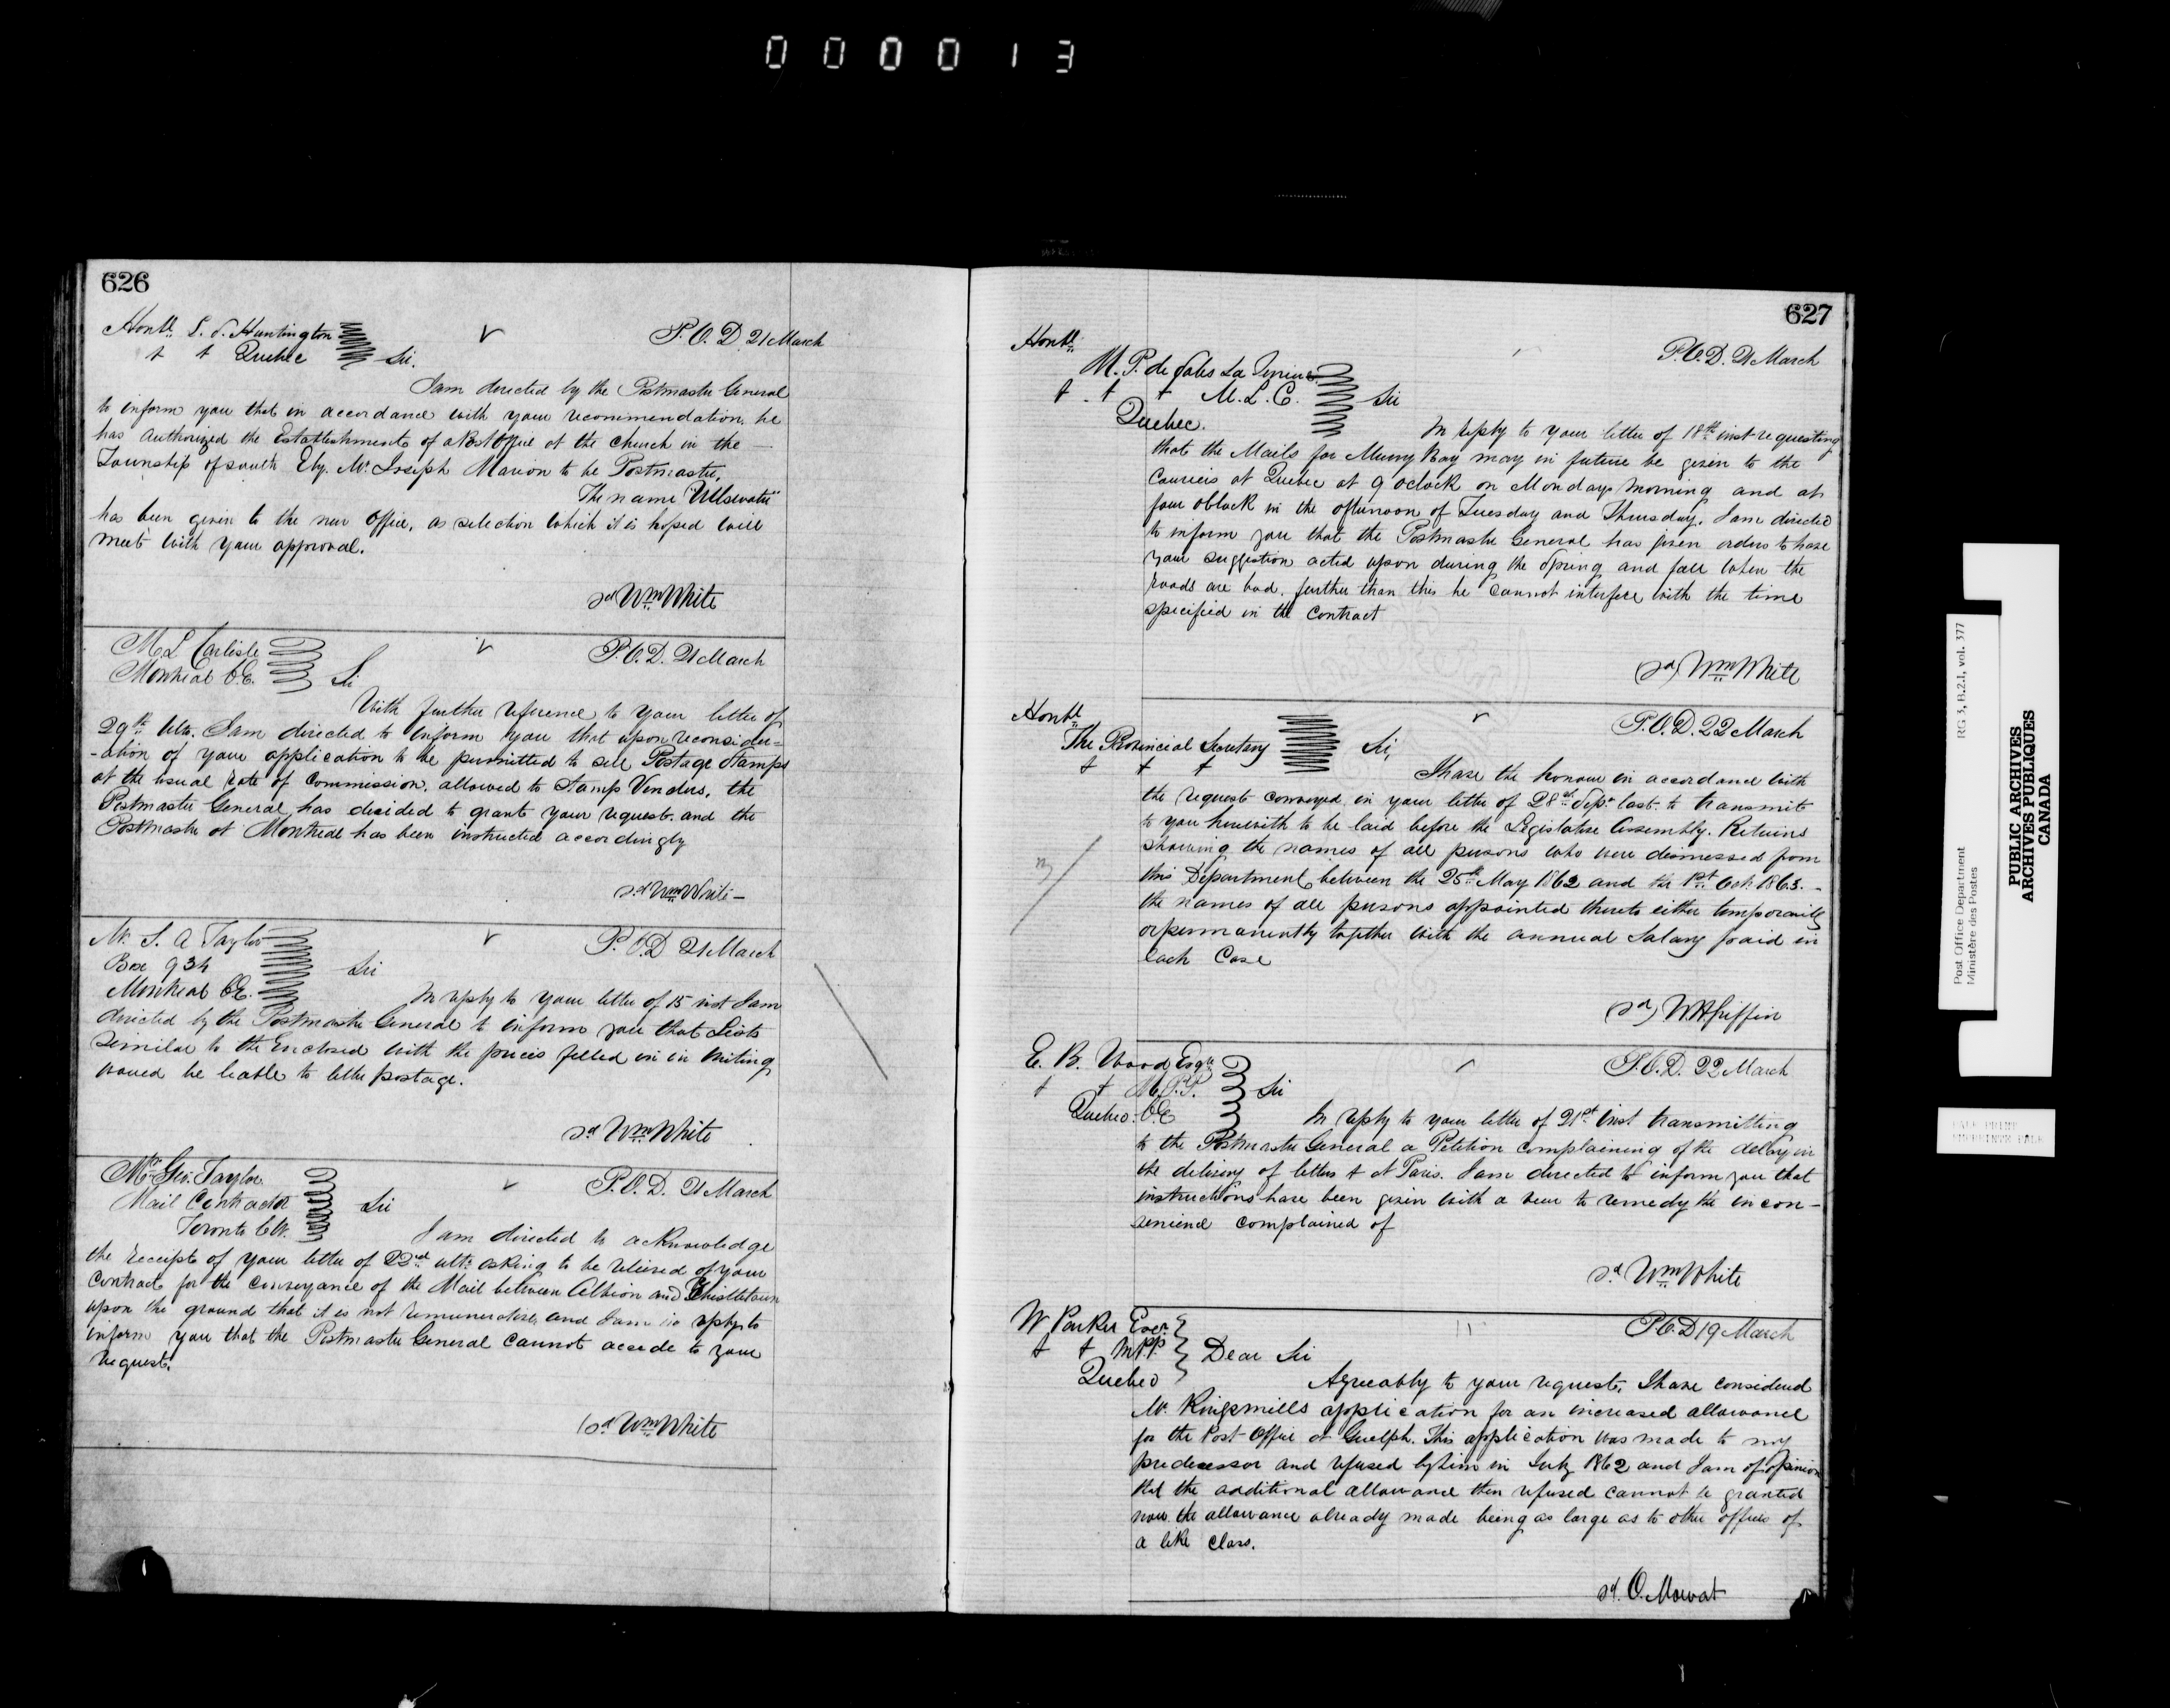 000013
626
Honble L. S. Huntington
P.O.D 21 March
& & Quebec
Sir.
I am directed by the Postmaster General
to inform you that in accordance with your recommendation, he
has authorized the Establishment of a Post Office at the Church in the
Township of South Ely. Mr Joseph Marion to be Postmaster,
The name "Ullswater"
has been given to the new Office, a selection which it is hoped will
meet with your approval.
sd Wm White
M L Carlisle
P.O.D. 21 March
Montreal C.E.
Sir
With further reference to your letter of
29th ulto. I am directed to inform you that upon reconsider=
-ation of your application to be permitted to sell Postage Stamps
at the usual rate of Commission, allowed to Stamp Vendors, the
Postmaster General has decided to grant your request and the
Postmaster at Montreal has been instructed accordingly
sd Wm White -
Mr. S. A Taylor
P.O.D 21 March
Box 934
Sir
Montreal CE.
In reply to your letter of 15 inst I am
directed by the Postmaster General to inform you that Lists
similar to the Enclosed with the prices filled in in writing
would be liable to letter postage.
sd Wm White
Mr. Geo. Taylor
P.O.D. 21 March
Mail Contractor
Sir
Toronto C.W.
I am directed to acknowledge
the receipt of your letter of 22nd ulto. asking to be relieved of your
Contract for the Conveyance of the Mail between Albion and Thistletown
upon the ground that it is not remunerative, and I am in reply to
inform you that the Postmaster General cannot accede to your
request.
(sd Wm White
627
Honble
P.O.D. 21 March
M. P. de Sales La Terriere
& & & M.L.C.
Sir
Quebec.
In reply to your letter of 18th inst requesting
that the Mails for Murray Bay may in future be given to the
Couriers at Quebec at 9 oclock on Mondays morning and at
four oClock in the afternoon of Tuesday and Thursday. I am directed
to inform you that the Postmaster General has given orders to have
your suggestion acted upon during the Spring and fall when the
roads are bad, further than this he cannot interfere with the time
specified in the Contract
(sd) Wm White
Honble
P.O.D. 22 March
The Provincial Secretary
Sir,
& & &
I have the honour in accordance with
the request conveyed in your letter of 28th Sept. last. to transmit
to you herewith to be laid before the Legislative Assembly. Returns
showing the names of all persons who were dismissed from
this Department between the 25th May 1862 and the 1st Oct 1863. -
the names of all persons appointed thereto either temporarily
or permanently together with the annual Salary paid in
each Case
(sd) W H Griffin
E. B. Wood Esqre
P.O.D. 22 March
& & M.P.P.
Sir
Quebec. CE
In reply to your letter of 21st inst transmitting
to the Postmaster General a Petition complaining of the delay in
the delivery of letters & at Paris. I am directed to inform you that
instructions have been given with a view to remedy the incon-
venience complained of
sd Wm White
W Parker Esqr.
P.O.D 19 March
& & M.P.P.
Dear Sir
Quebec
Agreeably to your request. I have considered
Mr. Kingsmills application for an increased allowance
for the Post Office at Guelph. This application was made to my
predecessor and refused by him in July 1862 and I am of opinion
that the additional allowance then refused cannot be granted
now the allowance already made being as large as to other offices of
a like Class.
sd. O. Mowat
Post Office Department RG 3, B.2.1, vol. 377
Ministère des Postes
PUBLIC ARCHIVES
ARCHIVES PUBLIQUES
CANADA